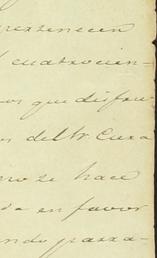 pertenecen
cuatrocien=
que disfru
del Sr. Cura
no se hace
en favor
ndo pasa-